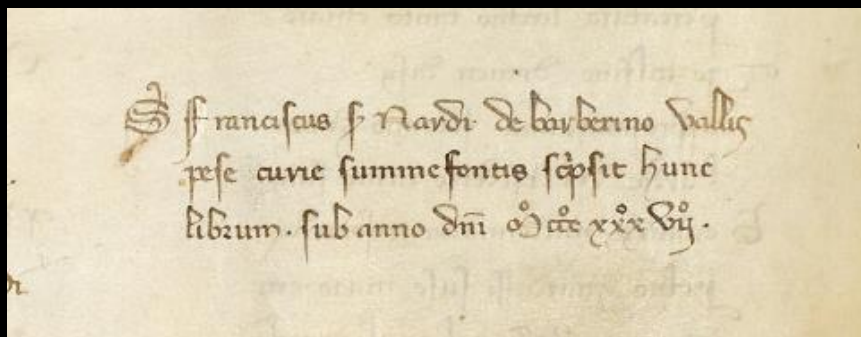 S̃ ffranciscus ß Nardi de barberino vallis
pese curie summefontis sc̃psit hunc
librum. sub anno dñi M°ccc°xxx°vij°.